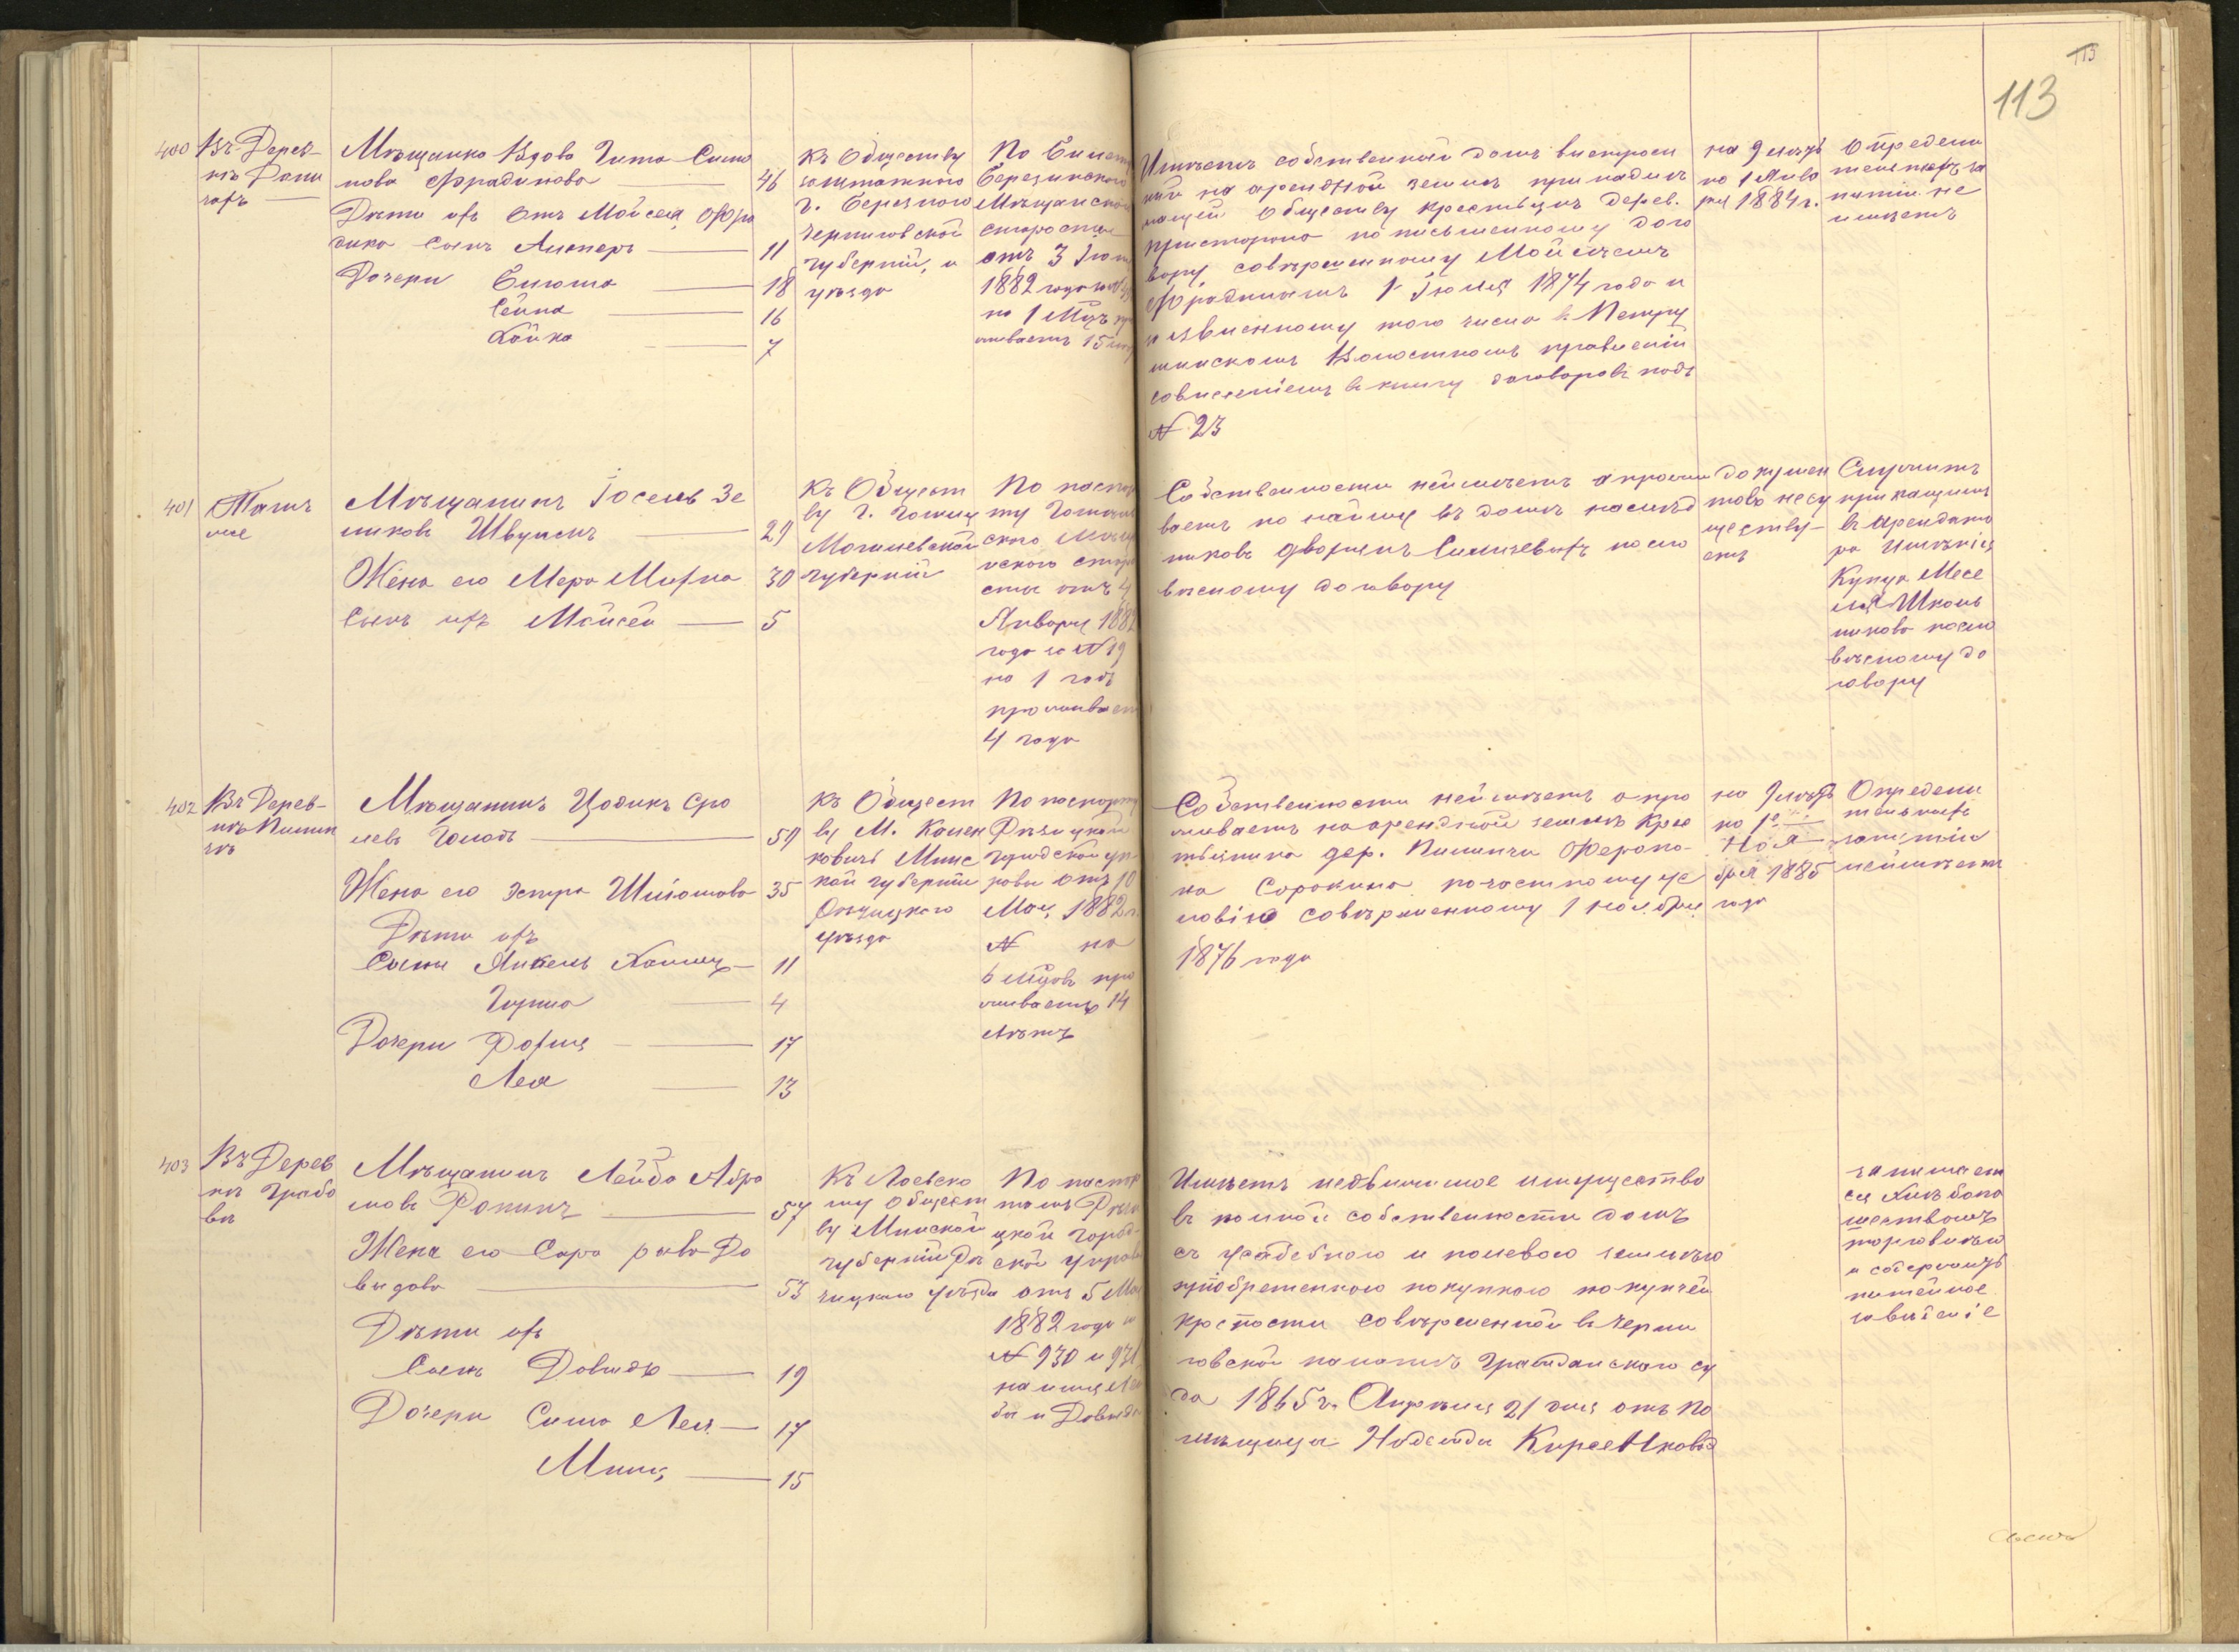 113
113
400
Въ Дерев-
нѣ Дани
чахъ
Мѣщанка Вдова Гита Симо
нова Фрадинова — 46
Дѣти ихъ отъ Мойсея Фра
дина сынъ — 11
Дочери Бигома — 18
Сейна — 16
Хайка — 7
Къ Обществу
заштатнаго
г. Березного
Черниговской
губерніи, и
уѣзда
По Билету
Березинского
Мѣщанского
старосты
отъ 3 Іюня
1882 года
на 1 Мцъ про
живаетъ 15
Имѣетъ собственный домъ выстроен
ный на арендной землѣ принадле
жащей Обществу крестьянъ дерев.
по письменному дого
вору совѣршенному Мойсѣемъ
Фрадинымъ 1 Іюля 1874 года и
явленному того числа въ Петру
шинскомъ Волостномъ правленіи
въ книгу договоровъ подъ
№ 23
на 9 лѣтъ
по 1 Янва
ря 1884 г.
Определи
тельныхъ за
нятій не
имѣетъ
401
Тамъ
же
Мѣщанинъ Іосель Зе
ликовъ — 29
Жена его Мера 30
Сынъ ихъ Мойсей — 5
Къ Общест
ву г. Гомиц
Могилевской
губерніи
По паспор
ту Гомель
ского Мѣщ
анского старо
сты отъ 4
Января 1882
года за № 19
на 1 годъ
проживает
4 года
Собственности неимѣетъ а прожи
ваетъ по найму въ домѣ наслѣд
никовъ дворянъ по сло
весному договору
докумен
товъ несу
ществу-
етъ
Служитъ
прикащикомъ
въ Арендато
ра имѣнія
Купца Месе
ля Школь
никова посло
весному до
говору
402
Въ Дерев-
нѣ
Мѣщанинъ Цодикъ Сро
левъ Голодъ — 59
Жена его Эстра 35
Дѣти ихъ
Сыны Янкель Хаимъ — 11
Гирша — 4
Дочери Рохля — 17
Лея — 13
Къ Общест
ву М. Камен
ковичъ Минс
кой губерніи
Рѣчицкаго
уѣзда
По паспорту
Рѣчицкой
городской уп
равы отъ 10
Мая 1882 г.
№ на
6 мцовъ про
живаетъ 14
лѣтъ
Собственности неимѣетъ а про
живаетъ на арендной землѣ Крес
тьянина дер. Ферапо-
на Сорокина по частному ус
ловію совѣршенному 1 ноября
1876 года
на 9 лѣтъ
по 1е
Ноя
бря 1885
года
Определи
тельныхъ
занятій
неимѣетъ
403
Въ Дерев
нѣ Грабо
вкѣ
Мѣщанинъ Лейба Абра
мовъ Ронинъ — 57
Жена его Сора рива До
выдова — 53
Дѣти ихъ
Сынъ Довидъ — 19
Дочери Сима Лея — 17
Миня — 15
Къ Лоевско
му Общест
ву Минской
губерніи Рѣ
чицкаго уѣзда
По паспор
тамъ Рѣчи
цкой Город-
ской управы
отъ 5 Мая
1882 года за
№ 930 и 931
на имя Лей
бы и Довида
Имѣетъ недвижимое имущество
въ полной собственности домъ
съ усадебною и полевою землею
пріобретенною покупкою по купчей
крепости совѣршенной въ Черни
говской палатѣ Гражданскаго су
да 1865 г. Апрѣля 21 дня отъ по
мѣщицы Надежды
занимает
ся Хлѣбопа
шествомъ
торговлею
и содержитъ
питейное
заведеніе